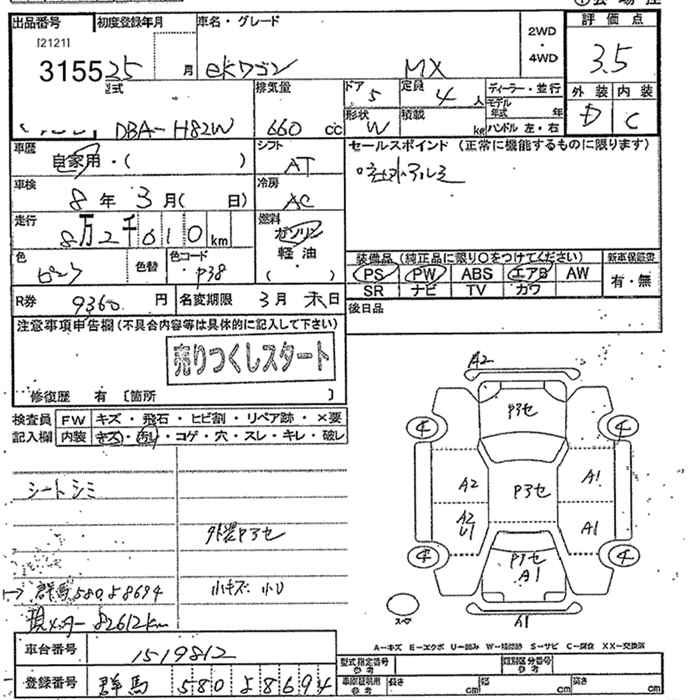 出品番号 初度登録年月 車名・グレード 2WD ・ 4WD 評価点
[2121]
3155 25 月 ekワゴン MX 3.5
型式 排気量 ドア 5 定員 4 人 ディーラー・並行 外装 内装
DBA-H82W 660 cc 形状 W 積載 kg モデル年式 年 ハンドル 左・右 D C
車歴 自家用・( ) シフト AT セールスポイント (正常に機能するものに限ります)
車検 8 年 3 月( 日) 冷房 AC 社外アルミ
走行 8万2千610km 燃料 ガソリン 軽油 ( )
色 色替 色コード P38
装備品 (純正品に限り○をつけてください) 新車保証書
PS PW ABS エアB AW 有・無
SR ナビ TV カワ
R券 9360 円 名変期限 3月末日 後日品
注意事項申告欄(不具合内容等は具体的に記入して下さい)
売りつくしスタート
修復歴 有 [箇所 ]
検査員 FW キズ・飛石・ヒビ割・リペア跡・×要
記入欄 内装 キズ・汚れ・コゲ・穴・スレ・キレ・破レ
シートシミ
外装Pヨセ
群馬580よ8694 小キズ・小U
現メーター82612km
A2
Pヨセ
4 4
A2 Pヨセ A1
A2 U1 A1
4 4
Pヨセ A1
スペ
A1
A-キズ E-エクボ U-凹み W-補修跡 S-サビ C-腐食 XX-交換済
車台番号 1519812
登録番号 群馬 580 よ 8694
型式指定番号 類別区分番号
長さ cm 幅 cm 高さ cm